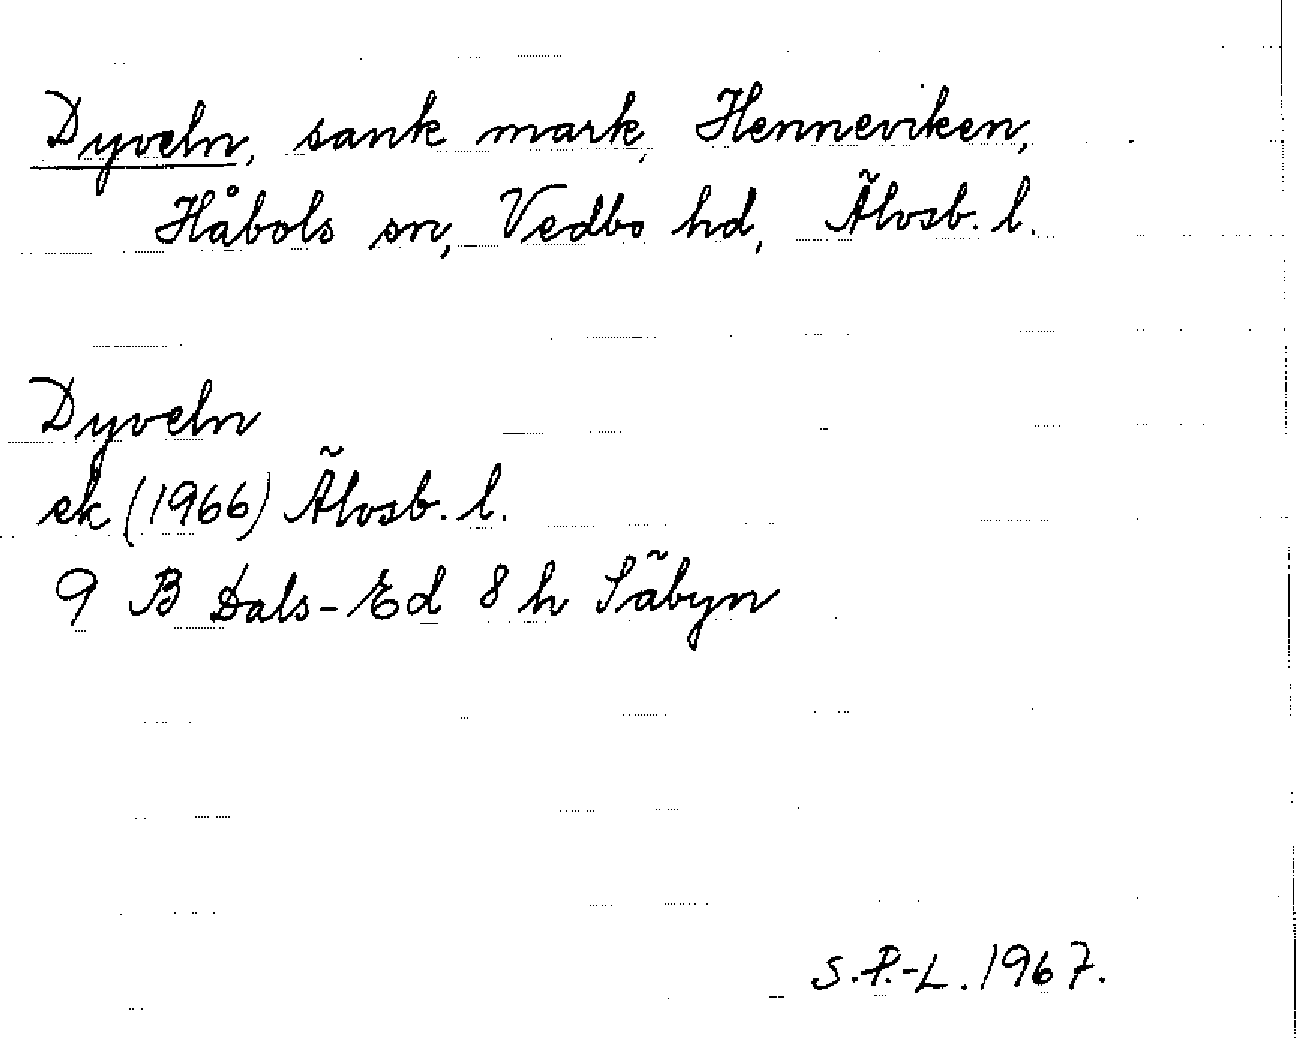 Dyveln, sank mark, Henneviken,
Håbols sn, Vedbo hd, Älvsb. l.
Dyveln
ek (1966) Älvsb. l.
9 B Dals-Ed 8 h Säbyn
S.P.-L. 1967.